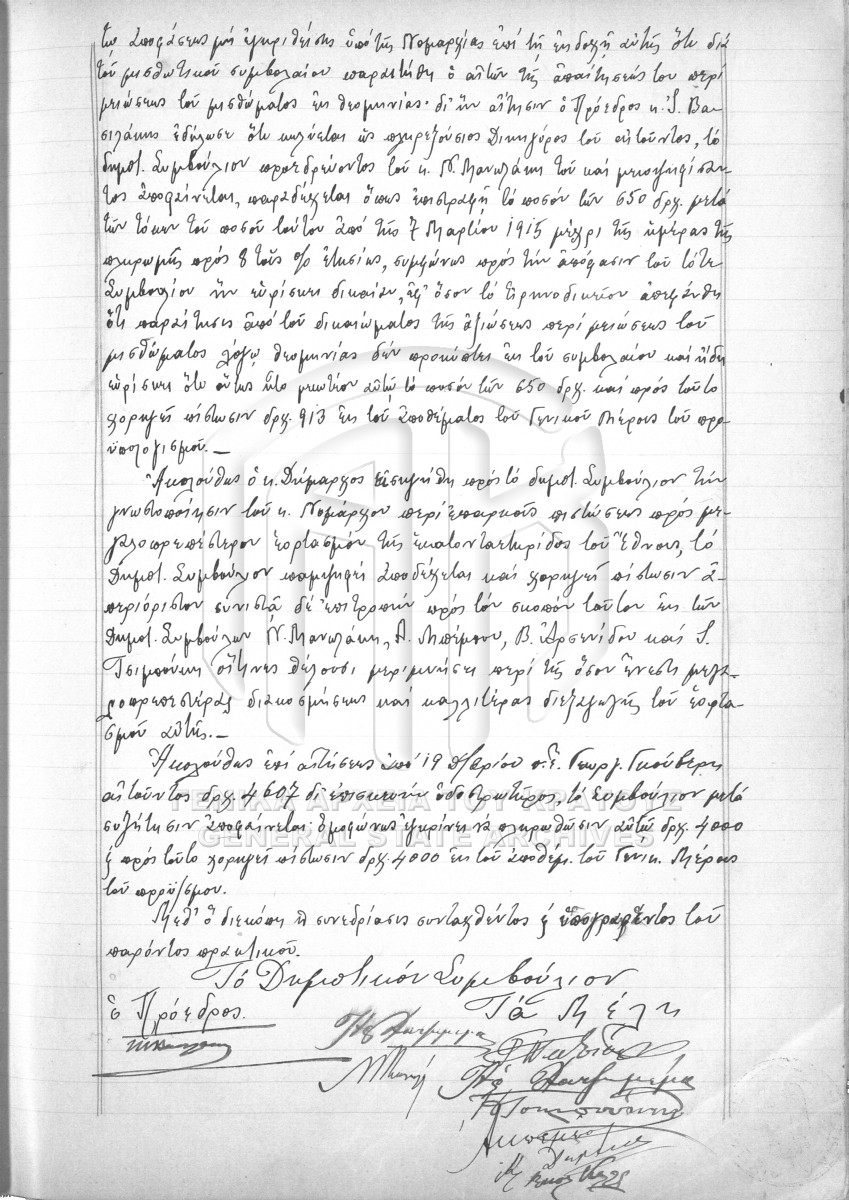 της αποφάσεως μη εγκριθείσης υπό της Νομαρχίας επί τη εκδοχή αυτής ότι διά
του μισθωτικού συμβολαίου παραιτήθη ο αιτών της απαιτήσεώς του περί
μειώσεως του μισθώματος εκ θεομηνίας· δι' ην αίτησιν ο Πρόεδρος κ. Ι. Βα-
σιλάκης εδήλωσε ότι κωλύεται ως πληρεξούσιος Δικηγόρος του αιτούντος, το
δημοτ. Συμβούλιον προεδρεύοντος του κ. Ν. Μανωλάκη του και μειοψηφίσαν-
τος αποφαίνεται, παραδέχεται όπως επιστραφή το ποσόν των 650 δρχ. μετά
των τόκων του ποσού τούτου από της 7 Μαρτίου 1915 μέχρι της ημέρας της
πληρωμής προς 8 τοις % ετησίως, συμφώνως προς την απόφασιν του τότε
Συμβουλίου ην ευρίσκει δικαίαν, εφ' όσον το Ειρηνοδικείον απεφάνθη
ότι παραίτησις από του δικαιώματος της αξιώσεως περί μειώσεως του
μισθώματος λόγω θεομηνίας δεν προκύπτει εκ του συμβολαίου και ήδη
ευρίσκει ότι ούτως ήτο μειωτέον αυτώ το ποσόν των 650 δρχ. και προς τούτο
χορηγεί πίστωσιν δρχ. 913 εκ του αποθέματος του Γενικού Μέρους του προ-
ϋπολογισμού.—
Ακολούθως ο κ. Δήμαρχος εισηγήθη προς το δημοτ. Συμβούλιον την
γνωστοποίησιν του κ. Νομάρχου περί επαρκούς πιστώσεως προς με-
γαλοπρεπέστερον εορτασμόν της εκατονταετηρίδος του Έθνους, το
Δημοτ. Συμβούλιον παμψηφεί αποδέχεται και χορηγεί πίστωσιν α-
περιόριστον συνιστά δε επιτροπήν προς τον σκοπόν τούτον εκ των
Δημοτ. Συμβούλων Ν. Μανωλάκη, Α. Μπέμπου, Β. Αρσενίδου και Ι.
Τσιμπούκη οίτινες θέλουσι μεριμνήσει περί της όσον ένεστι μεγα-
λοπρεπεστέρας διακοσμήσεως και καλλιτέρας διεξαγωγής του εορτα-
σμού αυτής.—
Ακολούθως επί αιτήσεως από 19 π. ε. Γεωργ. Γκούβερη
αιτούντος δρχ. 4607 δι' επισκευήν οδοστρωτήρος, το Συμβούλιον μετά
συζήτησιν αποφαίνεται ομοφώνως εγκρίνει να πληρωθώσιν αυτώ δρχ. 4000
ς προς τούτο χορηγεί πίστωσιν δρχ. 4000 εκ του αποθεμ. του Γενικ. Μέρους
του προϋ/σμου.
Μεθ' ο διεκόπη η συνεδρίασις συνταχθέντος ς υπογραφέντος του
παρόντος πρακτικού.
Το Δημοτικόν Συμβούλιον
ο Πρόεδρος. Τα Μέλη
ΓΕΝΙΚΑ ΑΡΧΕΙΑ ΤΟΥ ΚΡΑΤΟΥΣ
GENERAL STATE ARCHIVES